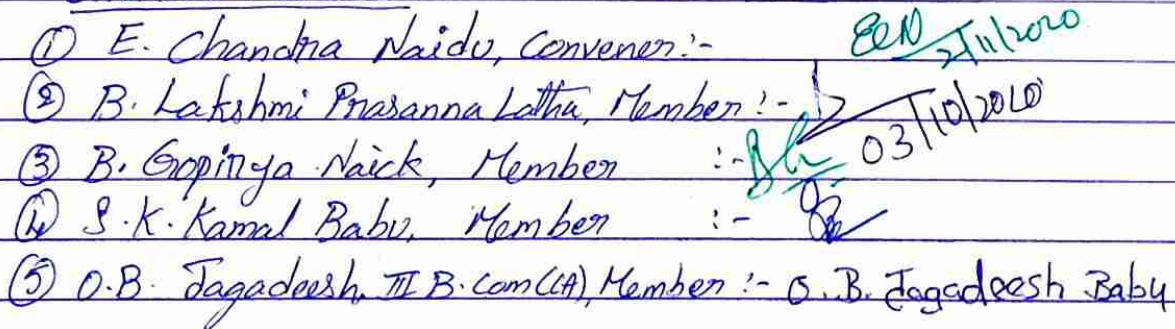 ① E. Chandra Naidu, Convener:- ECN 2/11/2020
② B. Lakshmi Prasanna Latha, Member :- 03/10/2020
③ B. Gopinya Naick, Member :-
④ S.K. Kamal Babu, Member :-
⑤ O.B. Jagadeesh, III B.Com(CA), Member :- O.B. Jagadeesh Babu